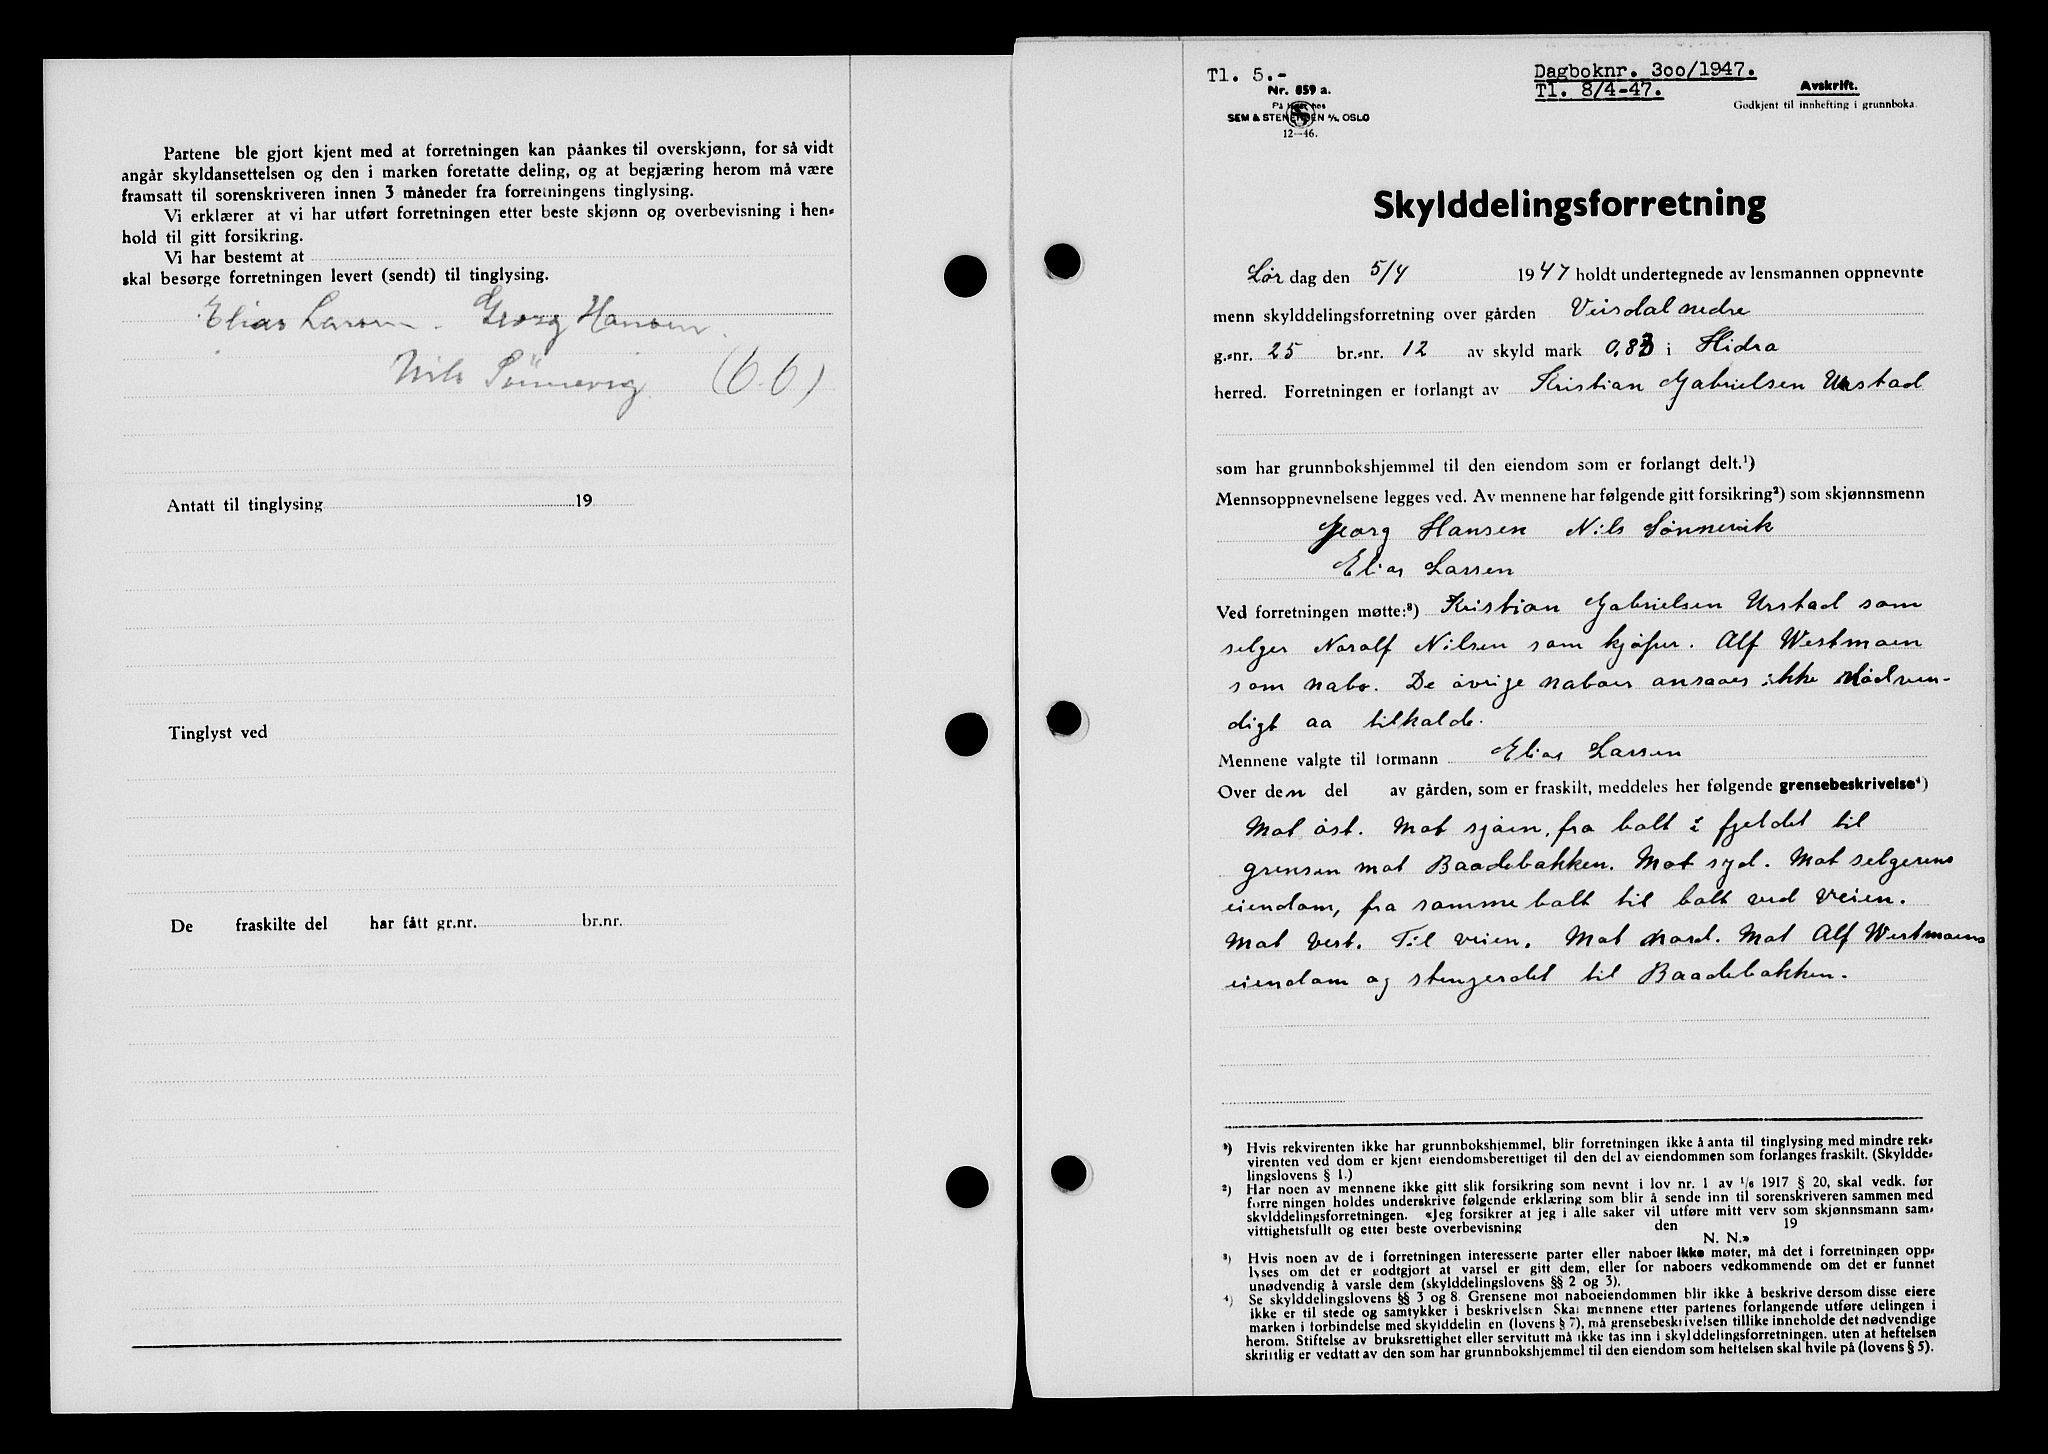 Partene ble gjort kjent med at forretningen kan påankes til overskjønn, for så vidt
angår skyldansettelsen og den i marken foretatte deling, og at begjæring herom må være
framsatt til sorenskriveren innen 3 måneder fra forretningens tinglysing.
Vi erklærer at vi har utført forretningen etter beste skjønn og overbevisning i hen-
hold til gitt forsikring.
Vi har bestemt at
skal besørge forretningen levert (sendt) til tinglysing.
Elias Larsen. Georg Hansen.
Nils Sünnevig. (6.6)
Antatt til tinglysing 19
Tinglyst ved
De fraskilte del har fått gr.nr. br.nr.
Tl. 5.-
Nr. 859 a.
På lager hos
SEM & STENERSEN A/S, OSLO
12—46.
Dagboknr. 3oo/1947.
Tl. 8/4-47.
Avskrift.
Godkjent til innhefting i grunnboka.
Skylddelingsforretning
Lør dag den 5/4 1947 holdt undertegnede av lensmannen oppnevnte
menn skylddelingsforretning over gården Veisdal nedre
g.-nr. 25 br.-nr. 12 av skyld mark 0,83 i Hidra
herred. Forretningen er forlangt av Kristian Gabrielsen Urstad
som har grunnbokshjemmel til den eiendom som er forlangt delt.¹)
Mennsoppnevnelsene legges ved. Av mennene har følgende gitt forsikring²) som skjønnsmenn
Georg Hansen Nils Sønnervik
Elias Larsen
Ved forretningen møtte:³) Kristian Gabrielsen Urstad som
selger Noralf Nilsen som kjøper. Alf Westmoen
som nabo. De øvrige naboer ansaaes ikke nødven-
digt aa tilkalde.
Mennene valgte til formann Elias Larsen
Over den del av gården, som er fraskilt, meddeles her følgende grensebeskrivelse⁴)
Mot øst. Mot sjøen, fra bolt i fjeldet til
grensen mot Baadebakken. Mot syd. Mot selgerens
eiendom, fra samme bolt til bolt ved veien.
Mot vest. Til veien. Mot nord. Mot Alf Westmoens
eiendom og stengerdet til Baadebakken.
¹) Hvis rekvirenten ikke har grunnbokshjemmel, blir forretningen ikke å anta til tinglysing med mindre rek-
virenten ved dom er kjent eiendomsberettiget til den del av eiendommen som forlanges fraskilt. (Skyldde-
lingslovens § 1.)
²) Har noen av mennene ikke gitt slik forsikring som nevnt i lov nr. 1 av 1/6 1917 § 20, skal vedk. før
forre ningen holdes underskrive følgende erklæring som blir å sende inn til sorenskriveren sammen med
skylddelingsforretningen. «Jeg forsikrer at jeg i alle saker vil utføre mitt verv som skjønnsmann sam-
vittighetsfullt og etter beste overbevisning den 19
N. N.»
³) Hvis noen av de i forretningen interesserte parter eller naboer ikke møter, må det i forretningen opp-
lyses om det er godtgjort at varsel er gitt dem, eller for naboers vedkommende om det er funnet
unødvendig å varsle dem (skylddelingslovens §§ 2 og 3).
⁴) Se skylddelingslovens §§ 3 og 8. Grensene mot naboeiendommen blir ikke å beskrive dersom disse eiere
ikke er til stede og samtykker i beskrivelsen. Skal mennene etter partenes forlangende utføre delingen i
marken i forbindelse med skylddelin en (lovens § 7), må grensebeskrivelsen tillike inneholde det nødvendige
herom. Stiftelse av bruksrettighet eller servitutt må ikke tas inn i skylddelingsforretningen, uten at heftelsen
skriftlig er vedtatt av den som har grunnbokshjemmel til den eiendom som heftelsen skal hvile på (lovens § 5).